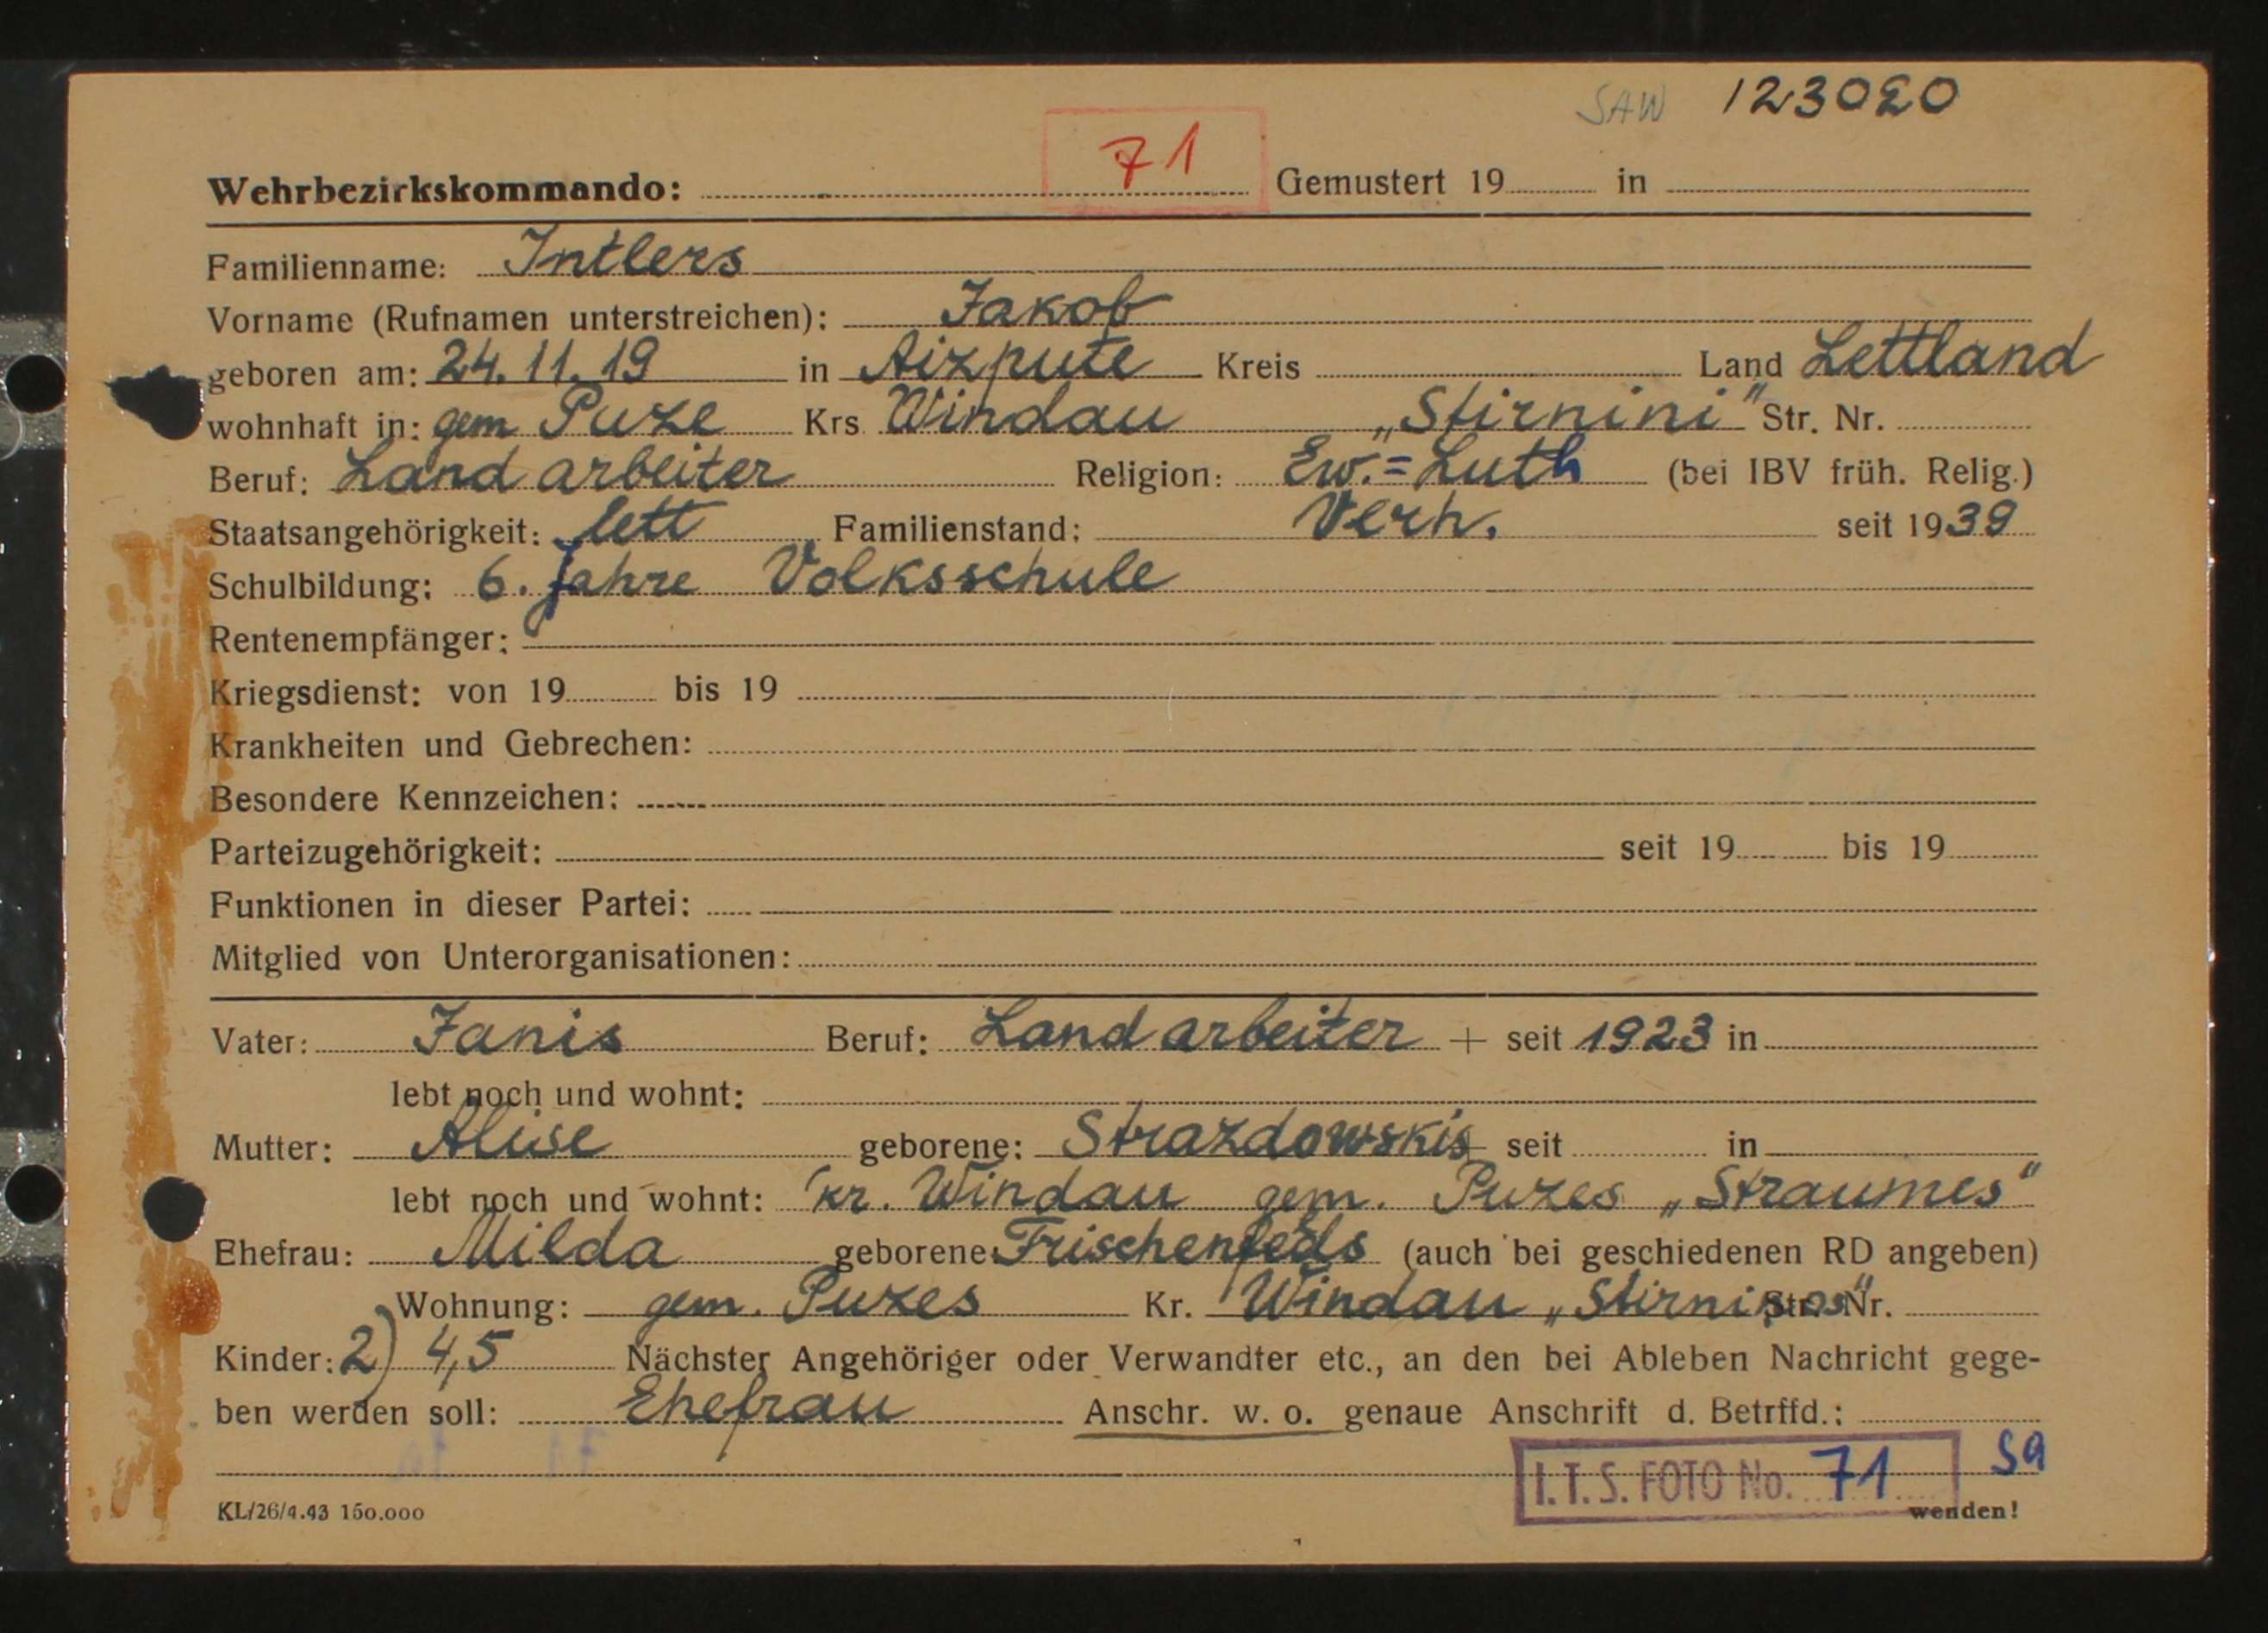 SAW 123020
71
Wehrbezirkskommando: Gemustert 19 in
Familienname: Intlers
Vorname (Rufnamen unterstreichen): Jakob
geboren am: 24.11.19 in Aizpute Kreis Land Lettland
wohnhaft in: gem Puze Krs Windau „Stirnini" Str. Nr.
Beruf: Landarbeiter Religion: Ew.=Luth (bei IBV früh. Relig.)
Staatsangehörigkeit: lett Familienstand: Verh. seit 1939
Schulbildung: 6. Jahre Volksschule
Rentenempfänger:
Kriegsdienst: von 19 bis 19
Krankheiten und Gebrechen:
Besondere Kennzeichen:
Parteizugehörigkeit: seit 19 bis 19
Funktionen in dieser Partei:
Mitglied von Unterorganisationen:
Vater: Janis Beruf: Landarbeiter + seit 1923 in
lebt noch und wohnt:
Mutter: Alise geborene: Strazdowskis + seit in
lebt noch und wohnt: kr. Windau gem. Puzes „Straumes"
Ehefrau: Milda geborene: (auch bei geschiedenen RD angeben)
Wohnung: gem. Puzes Kr. Windau Str. Nr.
Kinder: 2) 4,5 Nächster Angehöriger oder Verwandter etc., an den bei Ableben Nachricht gege-
ben werden soll: Ehefrau Anschr. w. o. genaue Anschrift d. Betrffd.:
I.T.S. FOTO No. 71 Sa
KL/26/4.43 150.000 wenden!